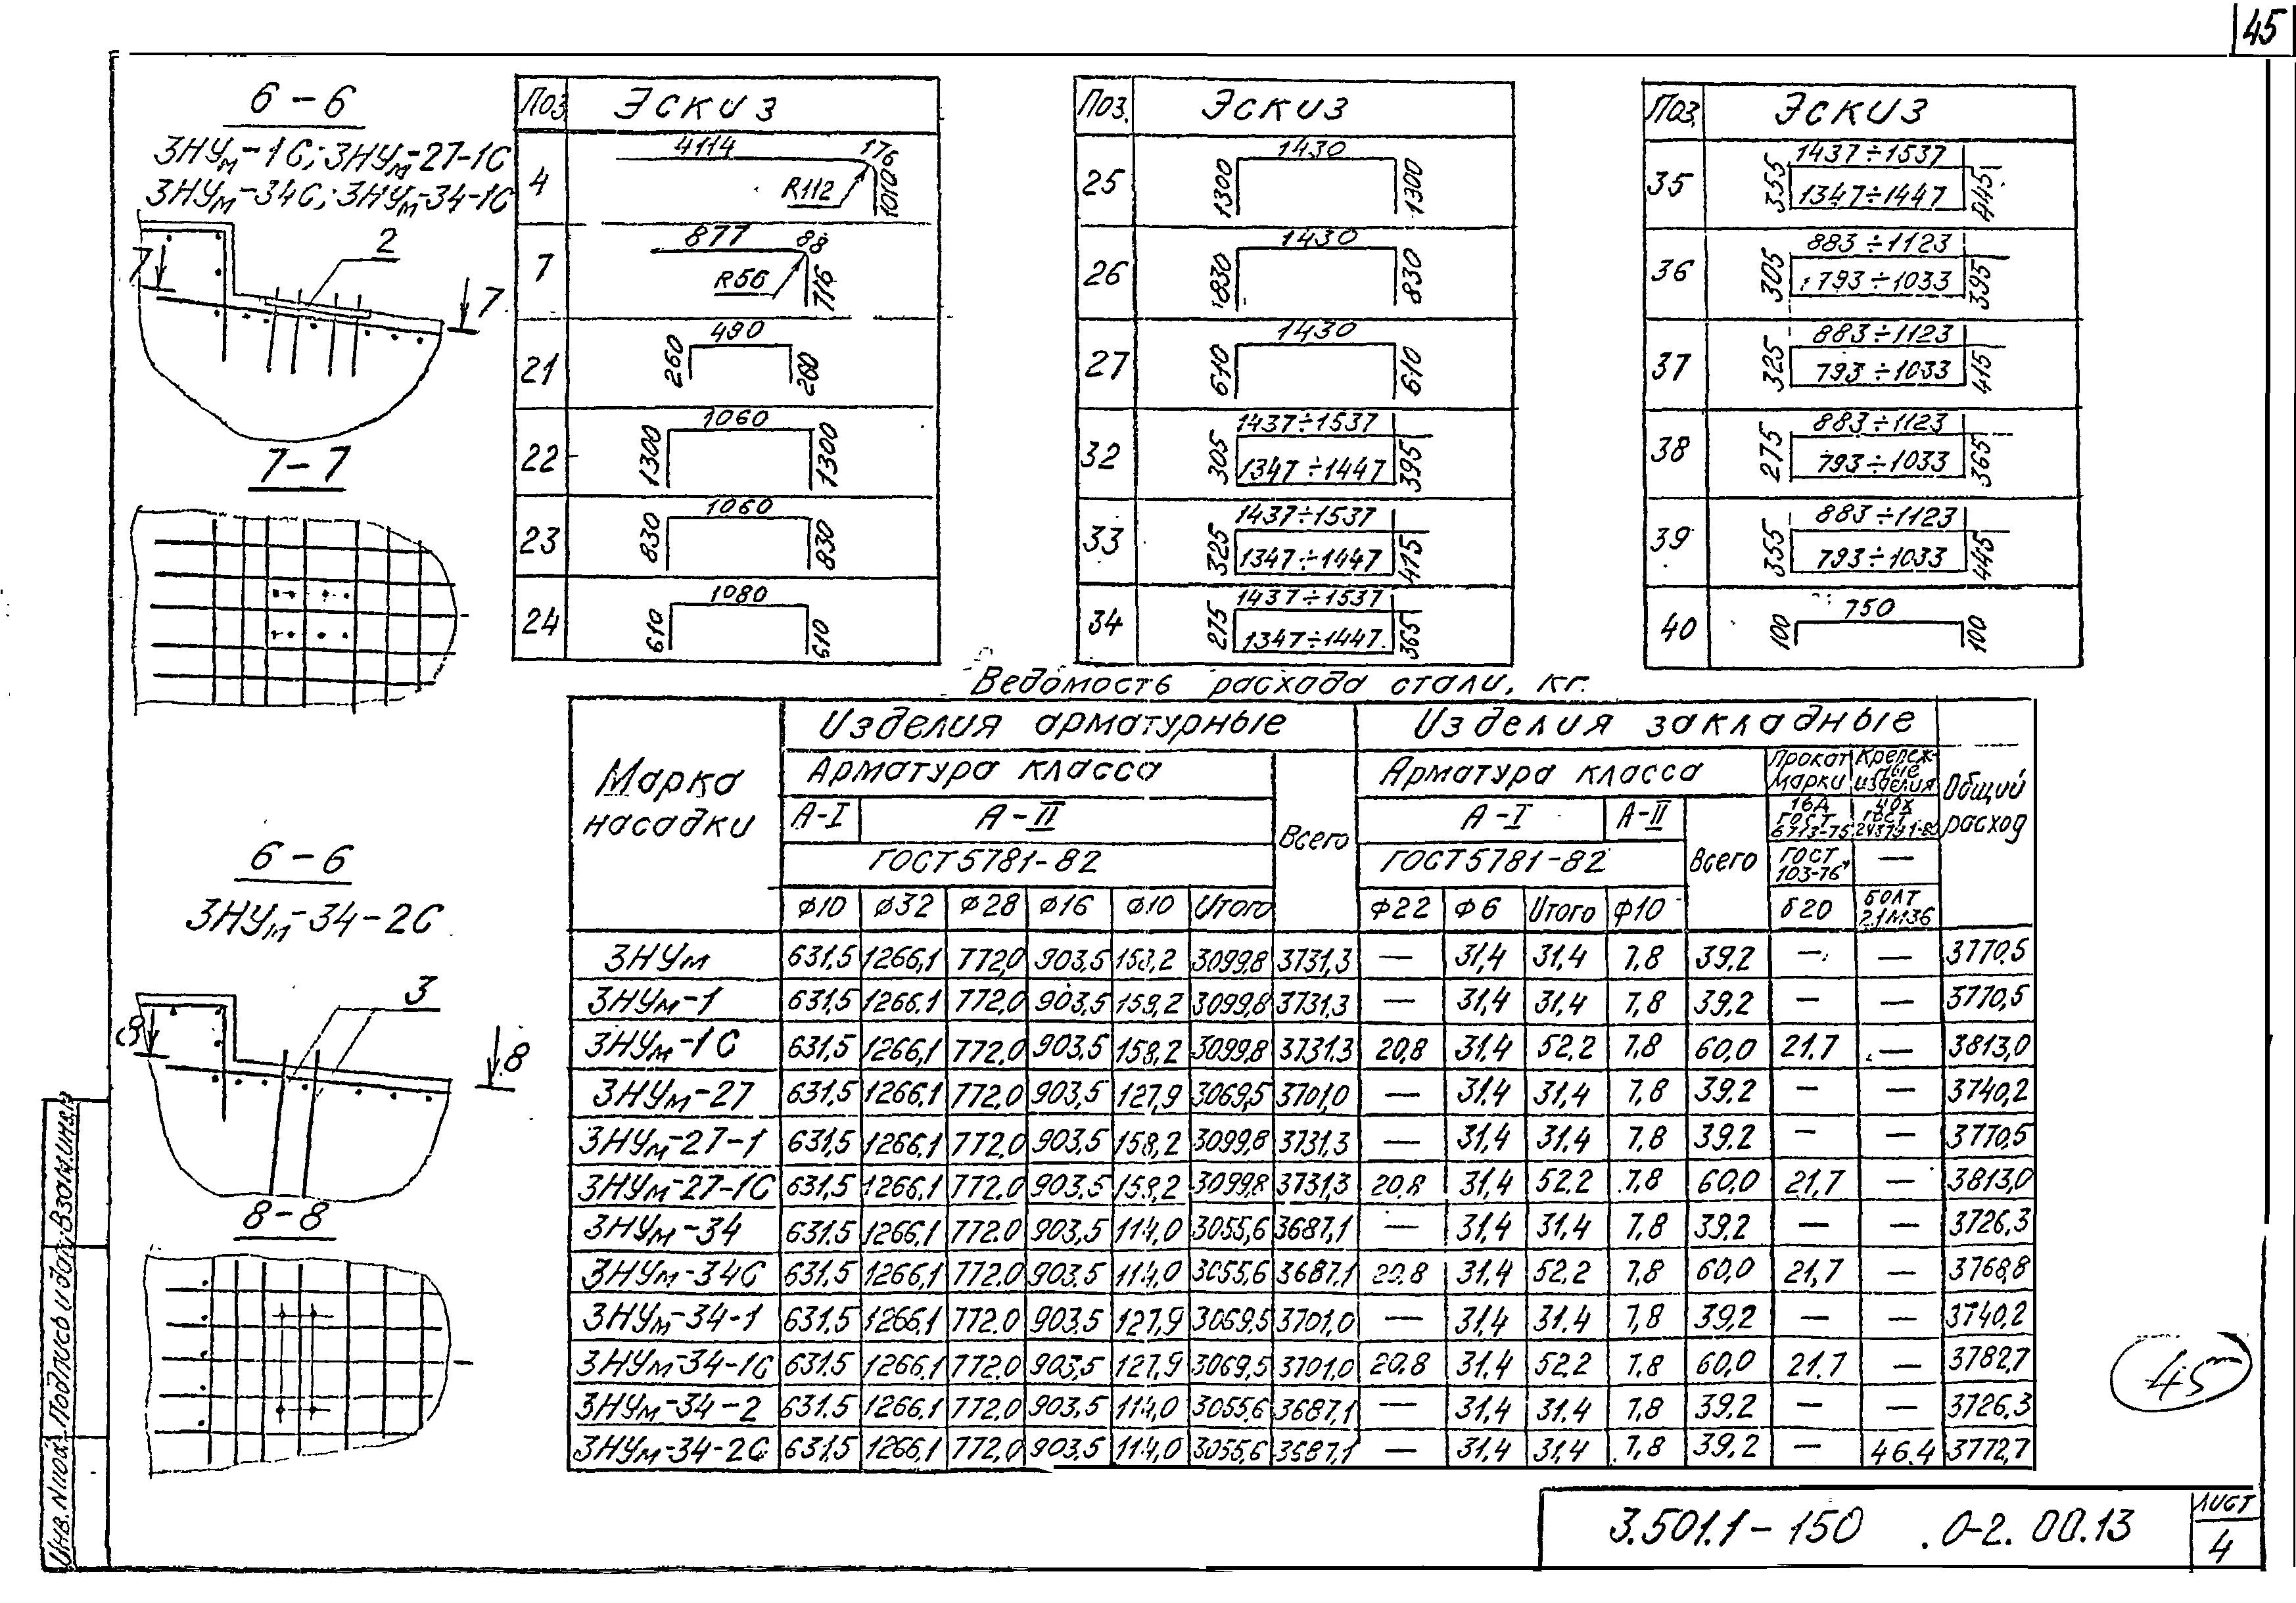 45
6-6
ЗНУм-1С; ЗНУм-27-1С
ЗНУм-34С; ЗНУм-34-1С
2
7
7
7-7
6-6
ЗНУм-34-2С
3
8
8
8-8
Поз. Эскиз
4 4114 176 R112 1010
7 877 88 R56 716
21 260 490 260
22 1300 1060 1300
23 830 1060 830
24 610 1080 610
Поз. Эскиз
25 1300 1430 1300
26 830 1430 830
27 610 1430 610
32 305 1437÷1537 1347÷1447 395
33 325 1437÷1537 1347÷1447 415
34 275 1437÷1537 1347÷1447 365
Поз. Эскиз
35 355 1437÷1537 1347÷1447 445
36 305 883÷1123 793÷1033 395
37 325 883÷1123 793÷1033 415
38 275 883÷1123 793÷1033 365
39 355 883÷1123 793÷1033 445
40 100 750 100
Ведомость расхода стали, кг.
Марка насадки
Изделия арматурные
Изделия закладные
Общий расход
Арматура класса
Всего
Арматура класса
Всего
Прокат марки
Крепежные изделия
А-I А-II
А-I А-II
16Д ГОСТ 6713-75
40Х ГОСТ
ГОСТ 5781-82
ГОСТ 5781-82
ГОСТ 103-76*
—
ф10 ф32 ф28 ф16 ф10 Итого
ф22 ф6 Итого ф10
δ20
БОЛТ 2.1М36
ЗНУм 631,5 1266,1 772,0 903,5 158,2 3099,8 3731,3 — 31,4 31,4 7,8 39,2 — — 3770,5
ЗНУм-1 631,5 1266,1 772,0 903,5 158,2 3099,8 3731,3 — 31,4 31,4 7,8 39,2 — — 3770,5
ЗНУм-1С 631,5 1266,1 772,0 903,5 158,2 3099,8 3731,3 20,8 31,4 52,2 7,8 60,0 21,7 — 3813,0
ЗНУм-27 631,5 1266,1 772,0 903,5 127,9 3069,5 3701,0 — 31,4 31,4 7,8 39,2 — — 3740,2
ЗНУм-27-1 631,5 1266,1 772,0 903,5 158,2 3099,8 3731,3 — 31,4 31,4 7,8 39,2 — — 3770,5
ЗНУм-27-1С 631,5 1266,1 772,0 903,5 158,2 3099,8 3731,3 20,8 31,4 52,2 7,8 60,0 21,7 — 3813,0
ЗНУм-34 631,5 1266,1 772,0 903,5 114,0 3055,6 3687,1 — 31,4 31,4 7,8 39,2 — — 3726,3
ЗНУм-34С 631,5 1266,1 772,0 903,5 114,0 3055,6 3687,1 20,8 31,4 52,2 7,8 60,0 21,7 — 3768,8
ЗНУм-34-1 631,5 1266,1 772,0 903,5 127,9 3069,5 3701,0 — 31,4 31,4 7,8 39,2 — — 3740,2
ЗНУм-34-1С 631,5 1266,1 772,0 903,5 127,9 3069,5 3701,0 20,8 31,4 52,2 7,8 60,0 21,7 — 3782,7
ЗНУм-34-2 631,5 1266,1 772,0 903,5 114,0 3055,6 3687,1 — 31,4 31,4 7,8 39,2 — — 3726,3
ЗНУм-34-2С 631,5 1266,1 772,0 903,5 114,0 3055,6 3687,1 — 31,4 31,4 7,8 39,2 — 46.4 3772,7
45
3.501.1-150 .0-2.00.13
Лист
4
Инв. N подл. Подпись и дата Взам.инв.N